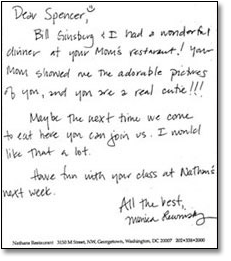 Dear Spencer,
Bill Ginsberg & I had a wonderful
dinner at your Mom's restaurant! Your
Mom showed me the adorable pictures
of you, and you are a real cutie!!!
Maybe the next time we come
to eat here you can join us. I would
like that a lot.
Have fun with your class at Nathan's
next week.
All the best,
Monica Lewinsky
Nathans Restaurant 3150 M Street, NW, Georgetown, Washington, DC 20007 202•338•2000